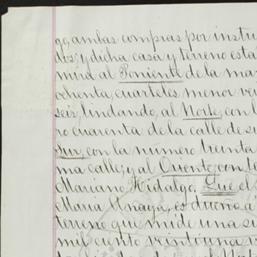 go, ambas compras por instru
dos; y dicha casa y terreno esta
mira al Poniente de la man
ochenta, cuarteles, menor vei
seis, lindando, al Norte, con l
ro cuarenta de la calle de s
Sur, con la número treinta
ma calle; y al Oriente con te
Mariano Hidalgo, Que el
María Anaya, es dueño d
terreno que mide una su
mil ciento veintiuna v